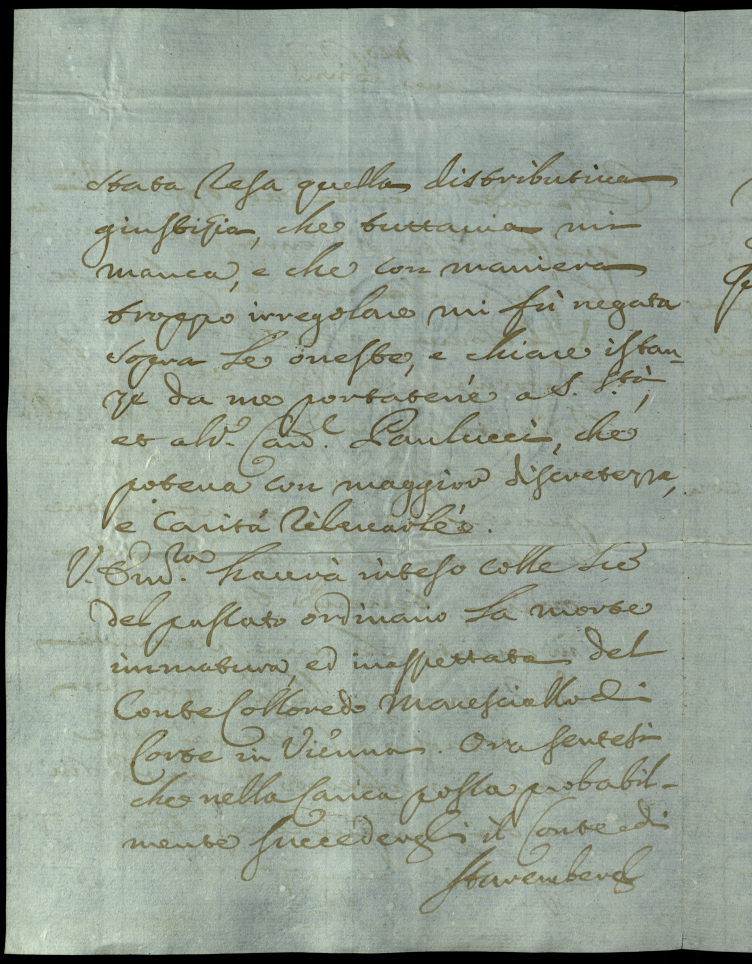 stata resa quella distributiva
giustizia, che tuttavia mi
manca, e che con maniera
troppo irregolare mi fù negata
sopra le oneste, e chiare istan-
ze da me portatene a S. S.tà,
et al S.r Card.l Paulucci, che
poteva con maggior discretezza,
e Carità rilevarle.
V. Em.za haverà inteso colle L.re
del passato ordinario la morte
immatura, ed inaspettata del
Conte Colloredo Maresciallo di
Corte in Vienna. Ora sentesi
che nella Carica possa probabil-
mente succedergli il Conte di
Staremberg